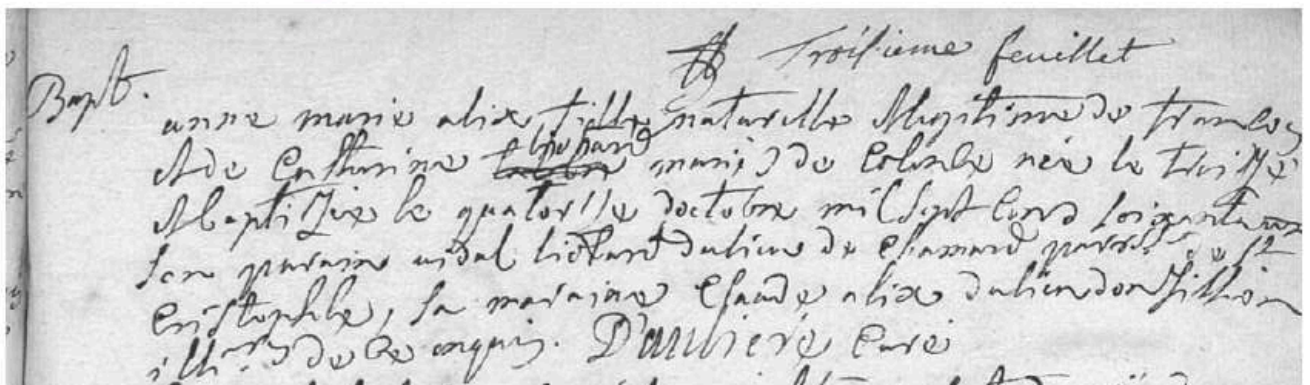 Troisieme feuillet
Bapt. anne marie alix fille naturelle & legitime de francois
& de Catharine liotard mariés de Colombe née le treize
& baptizée le quatorze doctobre mil sept Cens soixante
son parain vidal liotard du lieu de Chamard parrsse de st
Cristophle, sa maraine Claude alix du lieu don
de ce enquis. D'aubiere Curé